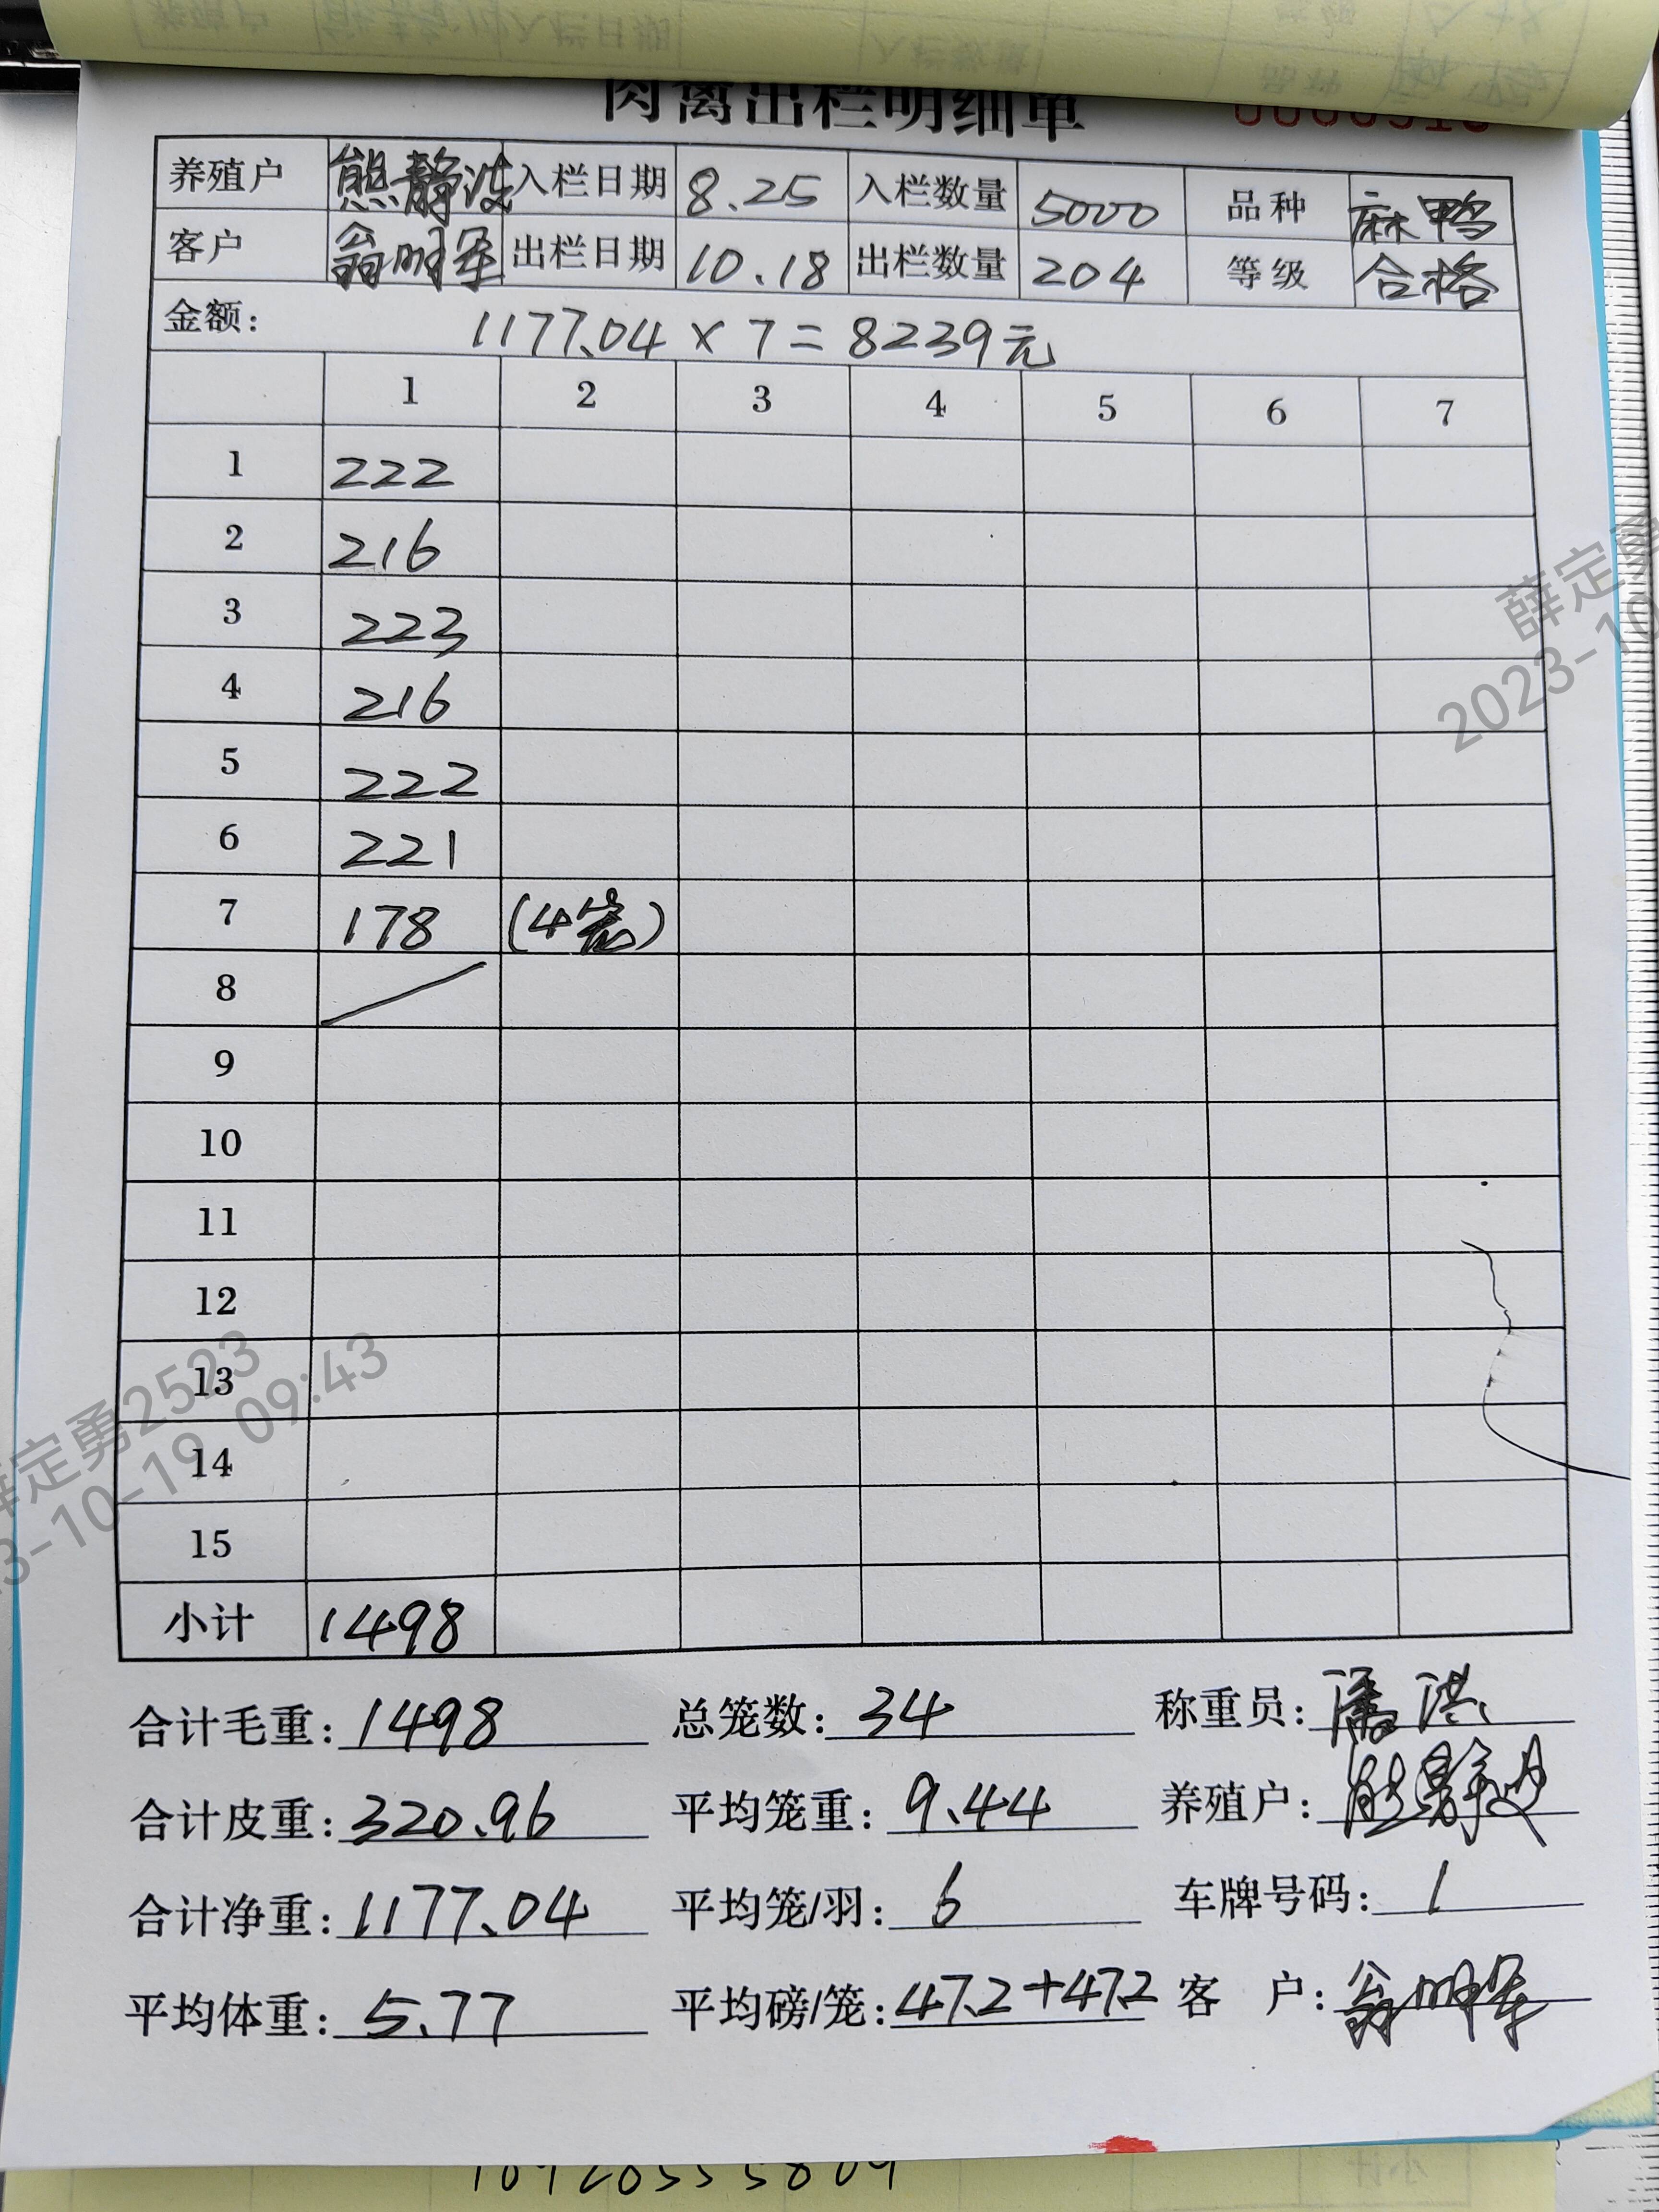 肉禽出栏明细单
养殖户 熊静波 入栏日期 8.25 入栏数量 5000 品种 麻鸭
客户 翁明军 出栏日期 10.18 出栏数量 204 等级 合格
金额: 1177.04 × 7 = 8239元
1 2 3 4 5 6 7
1 222
2 216
3 223
4 216
5 222
6 221
7 178 (4笼)
8
9
10
11
12
13
14
15
小计 1498
合计毛重: 1498 总笼数: 34 称重员: 潘洪
合计皮重: 320.96 平均笼重: 9.44 养殖户: 熊静波
合计净重: 1177.04 平均笼/羽: 6 车牌号码: 1
平均体重: 5.77 平均磅/笼: 47.2+47.2 客 户: 翁明军
薛定勇
2023-10
薛定勇2523
3-10-19 09:43